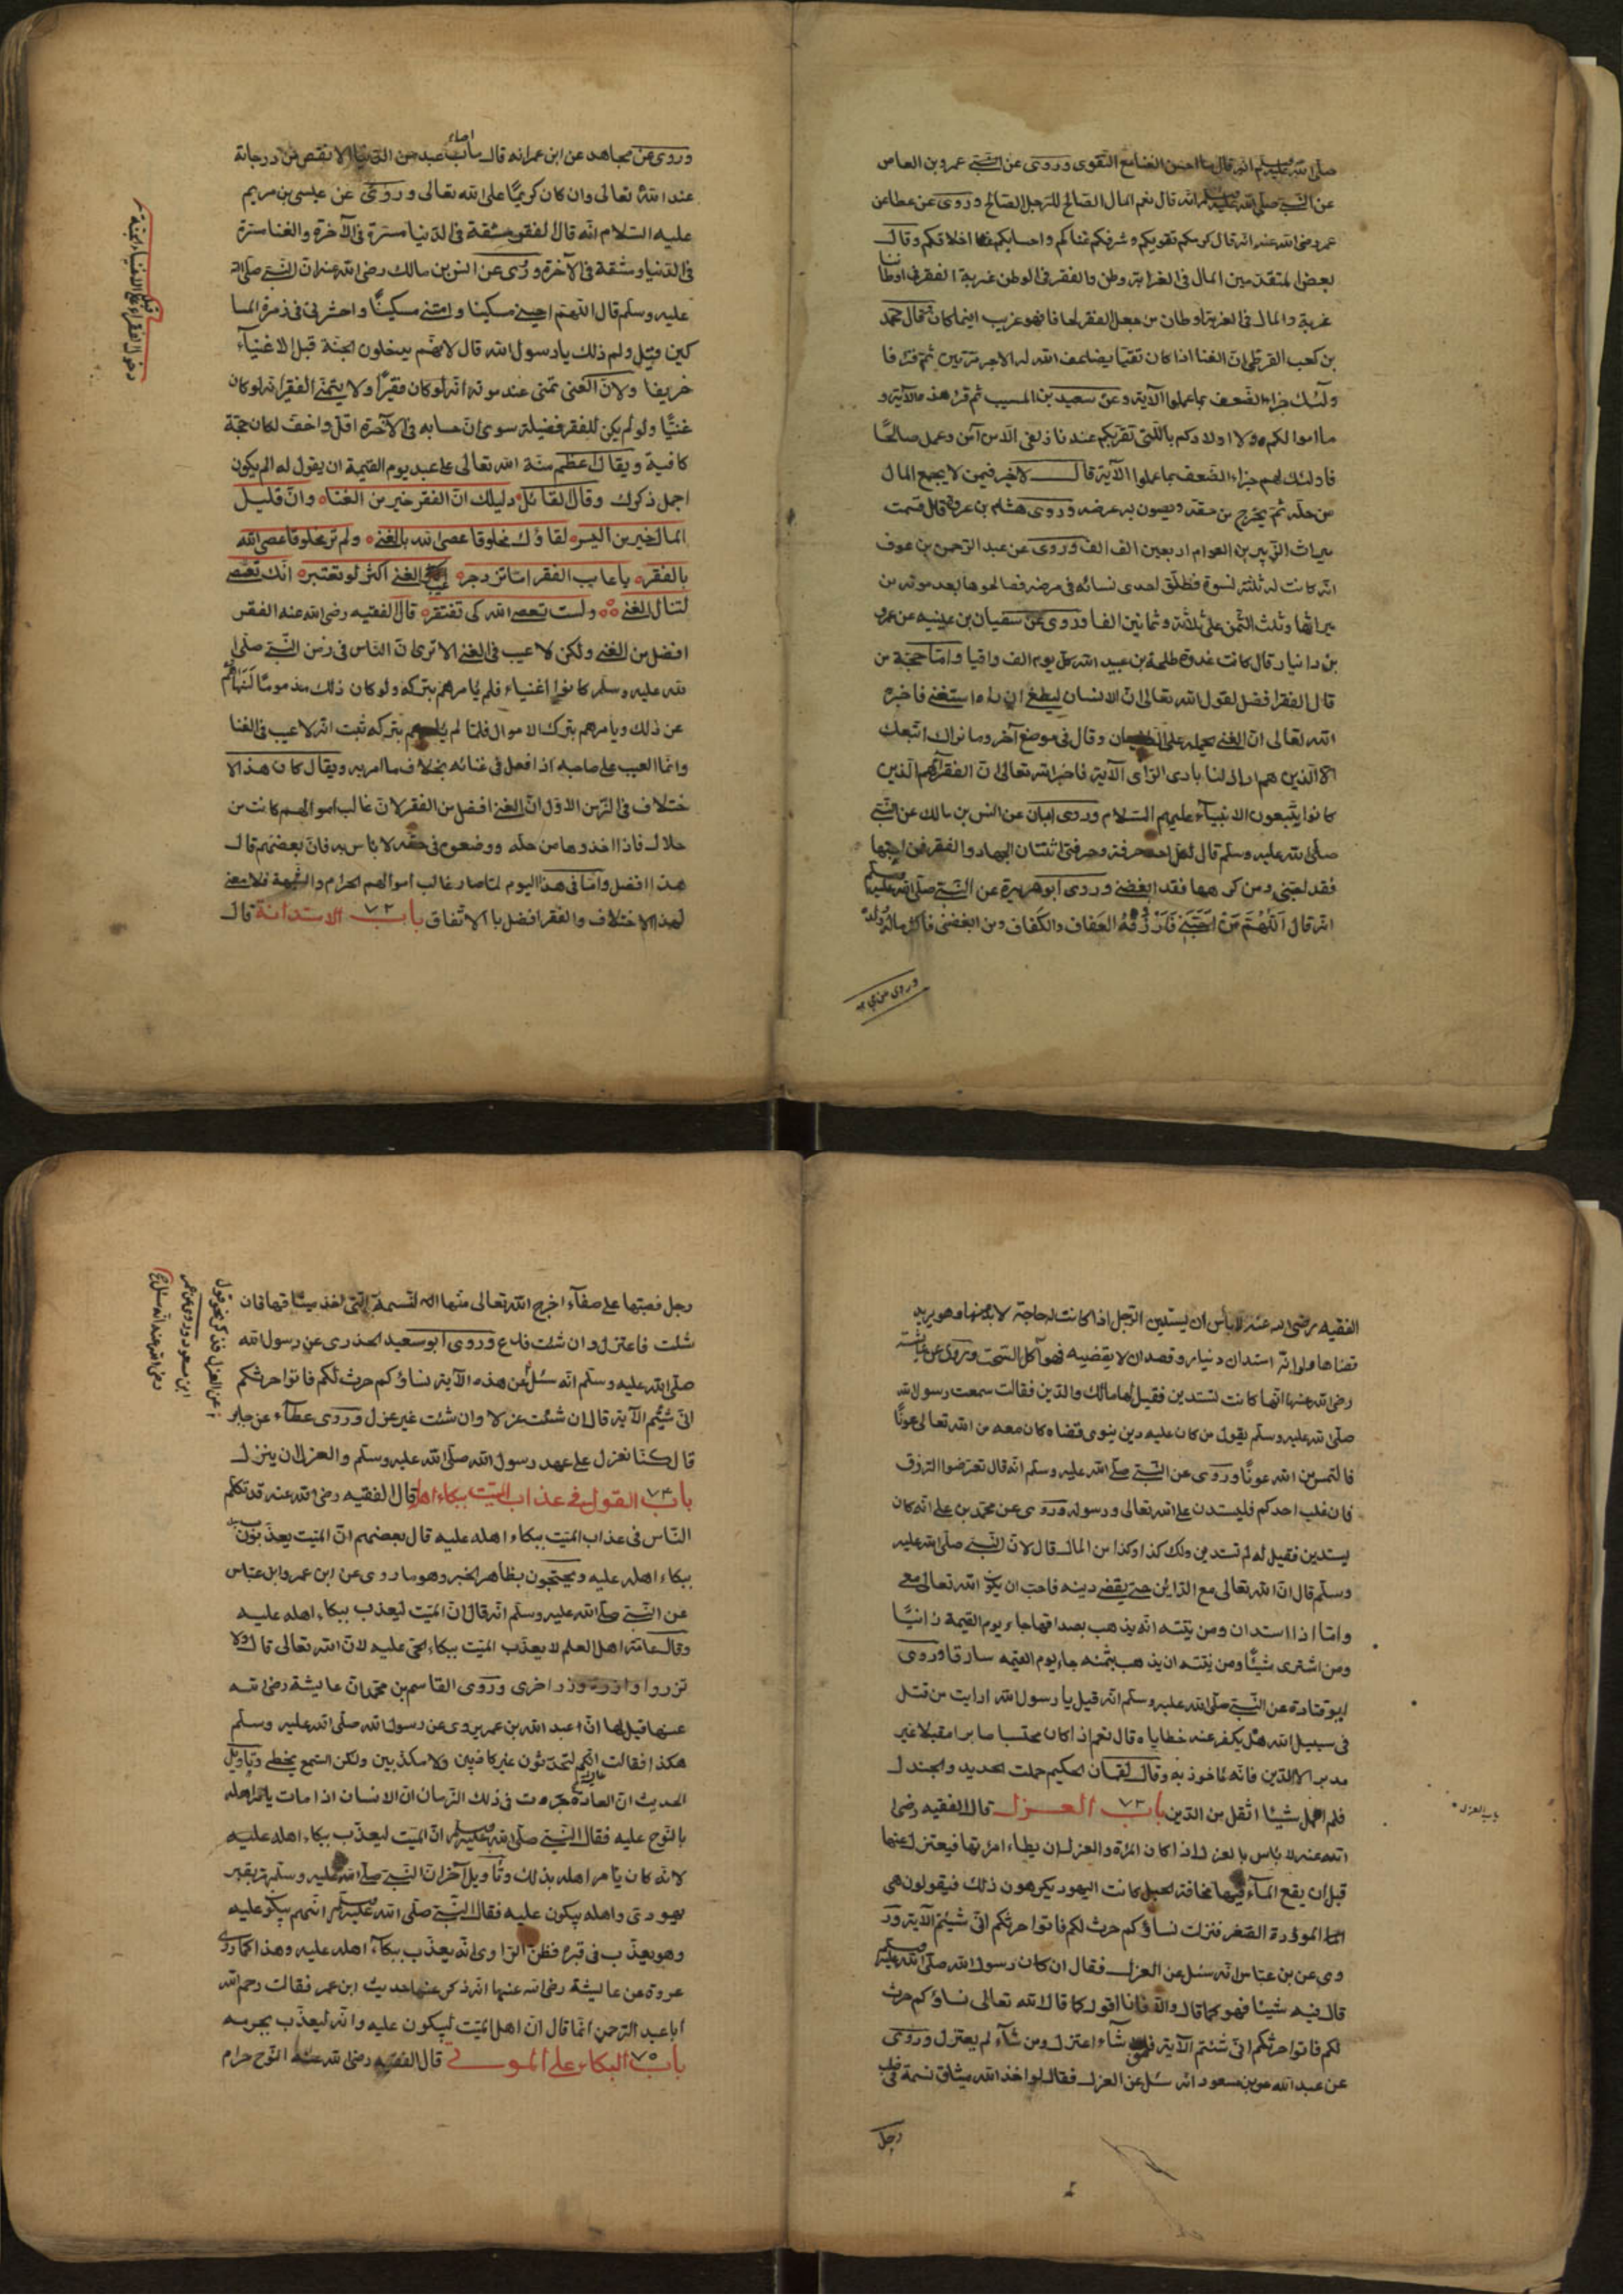 صلى الله عليه وسلم انه قال ما احسن الغنا مع التقوى وروى عن عمرو بن العاص
عن النبى صلى الله عليه وسلم انه قال نعم المال الصالح للرجل الصالح وروى عن عطا عن
عمر رضى الله عنه انه قال كرمكم تقويكم وشرفكم غناكم واحسابكم اخلاقكم وقال
بعض المتقدمين المال فى الغرابة وطن والفقر فى الوطن غربة الفقر فى اوطاننا
غربة والمال فى الغربة اوطان من جعل الفقر لحافا فهو غريب اينما كان وقال محمد
بن كعب القرظى ان الغنا اذا كان تقيا يضاعف الله له الاجر مرتين ثم قرء فا
ولئك جزاء الضعف بما عملوا الآية وعن سعيد بن المسيب ثم قرء هذه الآية و
ما اموالكم ولا اولادكم بالتى تقربكم عندنا زلفى الا من آمن وعمل صالحا
فاولئك لهم جزاء الضعف بما عملوا الآية قال لا خير فيمن لا يجمع المال
من حله ثم يخرج من حقه ويصون به عرضه وروى هشام بن عروة قال قسمت
ميراث الزبير بن العوام اربعين الف الف وروى عن عبد الرحمن بن عوف
انه كانت له ثلثة نسوة فطلق احدى نسائه فى مرضه فصالحوها بعد موته من
ميراثها وثلث الثمن على ثلاثة وثمانين الفا وروى عن سفيان بن عيينه عن عمرو
بن دانيار قال كانت غدوة طلحة بن عبيد الله كل يوم الف وافيا واما حجة من
قال الفقر افضل لقول الله تعالى ان الانسان ليطغى ان راه استغنى فاخبره
الله تعالى ان الغنى يحمله على الطغيان وقال فى موضع آخر وما نراك اتبعك
الا الذين هم اراذلنا بادى الراى الآية فاخبر الله تعالى ان الفقراء هم الذين
كانوا يتبعون الانبياء عليهم السلام وروى ابان عن انس بن مالك عن النبى
صلى الله عليه وسلم قال لكل احد حرفة وحرفتى اثنتان الجهاد والفقر فمن احبها
فقد احبنى ومن كرهها فقد ابغضنى وروى ابو هريرة عن النبى صلى الله عليه وسلم
انه قال اللهم من احبنى فارزقه العفاف والكفاف ومن ابغضنى فاكثر ماله وولده
وروى عن مجاهد عن ابن عمر انه قال ما اصاب عبد من الدنيا الا نقص من درجاته
عند الله تعالى وان كان كريما على الله تعالى وروى عن عيسى بن مريم
عليه السلام انه قال الفقر مشقة فى الدنيا مسترة فى الآخرة والغنا مسترة
فى الدنيا ومشقة فى الآخرة وروى عن انس بن مالك رضى الله عنه ان النبى صلى الله
عليه وسلم قال اللهم احينى مسكينا وامتنى مسكينا واحشرنى فى زمرة المسا
كين وقيل ولم ذلك يا رسول الله قال لانهم يدخلون الجنة قبل الاغنياء
خريفا ولان الغنى تمنى عند موته انه لو كان فقيرا ولا يتمنى الفقير انه لو كان
غنيا ولو لم يكن للفقر فضيلة سوى ان حسابه فى الآخرة اقل واخف لكان حجة
كافية ويقال اعظم منة الله تعالى على عبد يوم القيمة ان يقول له الم يكون
اجمل ذكرك وقال القائل دليلك ان الفقر خير من الغناه وان قليل
المال خير من اليسر لقاؤك مخلوقا عصى الله بالغنى ولم تر مخلوقا عصى الله
بالفقر يا عايب الفقر اما تزدجر عيب الغنى اكثر لو تعتبر انك تعصى
لتنال الغنى ولست تعصى الله كى تفتقر قال الفقيه رضى الله عنه الفقر
افضل من الغنى ولكن لا عيب فى الغنى الا ترى ان الناس فى زمن النبى صلى
الله عليه وسلم كانوا اغنياء فلم يأمرهم بتركه ولو كان ذلك مذموما لنهاهم
عن ذلك ويأمرهم بترك الاموال فلما لم يأمرهم بتركه ثبت انه لا عيب فى الغنا
وانما العيب على صاحبه اذا فعل فى غنائه بخلاف ما امر به ويقال كان هذا الا
ختلاف فى الزمن الاول ان الغنى افضل من الفقر لان غالب اموالهم كانت من
حلال فاذا اخذوها من حله ووضعوه فى حقه لا بأس به فان بعضهم قال
هذا افضل واما فى هذا اليوم لما صار غالب اموالهم الحرام والشبهة فلا معنى
لهذا الاختلاف والفقر افضل بالاتفاق باب ٧٢ الاستدانة قال
دخول الفقراء قبل الاغنياء الجنة
الفقيه رضى الله عنه لا بأس ان يستدين الرجل اذا كانت له حاجة لا بد منها وهو يريد
قضاها ولو انه استدان دنيار وقصد ان لا يقضيه فهو آكل السحت وروى عن عايشة
رضى الله عنها انها كانت تستدين فقيل لها مالك والدين فقالت سمعت رسول الله
صلى الله عليه وسلم يقول من كان عليه دين ينوى قضاه كان معه من الله تعالى عونا
فالتمس من الله عونا وروى عن النبى صلى الله عليه وسلم انه قال تعرضوا الرزق
فان غلب احدكم فليستدن على الله تعالى ورسوله وروى عن محمد بن على انه كان
يستدين فقيل له لم تستدين ولك كذا وكذا من المال قال لان النبى صلى الله عليه
وسلم قال ان الله تعالى مع الداين حتى يقضى دينه فاحب ان يكون الله تعالى معى
واما اذا استدان ومن نيته انه يذهب بصداقها جاء يوم القيمة زانيا
ومن اشترى شيئا ومن نيته ان يذهب بثمنه جاء يوم القيمه سارقا وروى
ابو قتادة عن النبى صلى الله عليه وسلم انه قيل يا رسول الله ارايت من قتل
فى سبيل الله هل يكفر عنه خطاياه قال نعم اذا كان محتسبا صابرا مقبلا غير
مدبر الا الدين فانه مأخوذ به وقال لقمان الحكيم حملت الحديد والجندل
فلم احمل شيئا اثقل من الدين باب ٧٣ العزل قال الفقيه رضى
الله عنه لا بأس بالعزل اذا كان المرءة والعزل ان يطاء امرئتها فيعتزل عنها
قبل ان يقع الماء فيها مخافة الحبل كانت اليهود يكرهون ذلك فيقولون هى
انها الموؤدة الصغر فنزلت نساؤكم حرث لكم فاتوا حرثكم انى شئيتم الآية ور
وى عن بن عباس انه سئل عن العزل فقال ان كان رسول الله صلى الله عليه وسلم
قال فيه شيئا فهو كما قال والا فانا اقول كما قال الله تعالى نساؤكم حرث
لكم فاتوا حرثكم انى شئتم الآية فمن شاء اعتزل ومن شاء لم يعتزل وروى
عن عبد الله بن مسعود انه سئل عن العزل فقال لو اخذ الله ميثاق نسمة فى صلب
رجل
باب العزل
رجل فصبتها على صفاء اخرج الله تعالى منها النسمة التى اخذ ميثاقها فان
شئت فاعتزل وان شئت فدع وروى ابو سعيد الخدرى عن رسول الله
صلى الله عليه وسلم انه سئل عن هذه الآية نساؤكم حرث لكم فاتوا حرثكم
انى شئتم الآية قال ان شئت عزلا وان شئت غير عزل وروى عطاء عن جابر
قال كنا نعزل على عهد رسول الله صلى الله عليه وسلم والعزل ان ينزل
باب ٧٤ القول فى عذاب الميت ببكاء اهله قال الفقيه رضى الله عنه قد تكلم
الناس فى عذاب الميت ببكاء اهله عليه قال بعضهم ان الميت يعذبون
ببكاء اهله عليه ويحتجون بظاهر الخبر وهو ما روى عن ابن عمر وابن عباس
عن النبى صلى الله عليه وسلم انه قال ان الميت ليعذب ببكاء اهله عليه
وقال عامة اهل العلم لا يعذب الميت ببكاء الحى عليه لان الله تعالى قال ولا
تزروا وازرة وزر اخرى وروى القاسم بن محمد ان عايشة رضى الله
عنها قيل لها ان عبد الله بن عمر يروى عن رسول الله صلى الله عليه وسلم
هكذا فقالت انكم لتحدثون غير كاذبين ولا مكذبين ولكن السمع يخطى وتاويل
الحديث ان العادة جرت فى ذلك الزمان ان الانسان اذا مات يأمر اهله
بالنوح عليه فقال النبى صلى الله عليه وسلم ان الميت ليعذب ببكاء اهله عليه
لانه كان يأمر اهله بذلك وتأويل آخر ان النبى صلى الله عليه وسلم مر بقبر
يهودى واهله يبكون عليه فقال النبى صلى الله عليه وسلم انهم يبكو عليه
وهو يعذب فى قبره فظن الراوى انه يعذب ببكاء اهله عليه وهذا كما روى
عروة عن عايشة رضى الله عنها انه ذكر عنها حديث ابن عمر فقالت رحم الله
ابا عبد الرحمن انما قال ان اهل الميت ليبكون عليه وانه ليعذب بجرمه
باب ٧٥ البكاء على الموتى قال الفقيه رضى الله عنه النوح حرام
عن العزل فذكر نحو قول
ابن مسعود وروى عن عمر
رضى الله عنه انه سئل